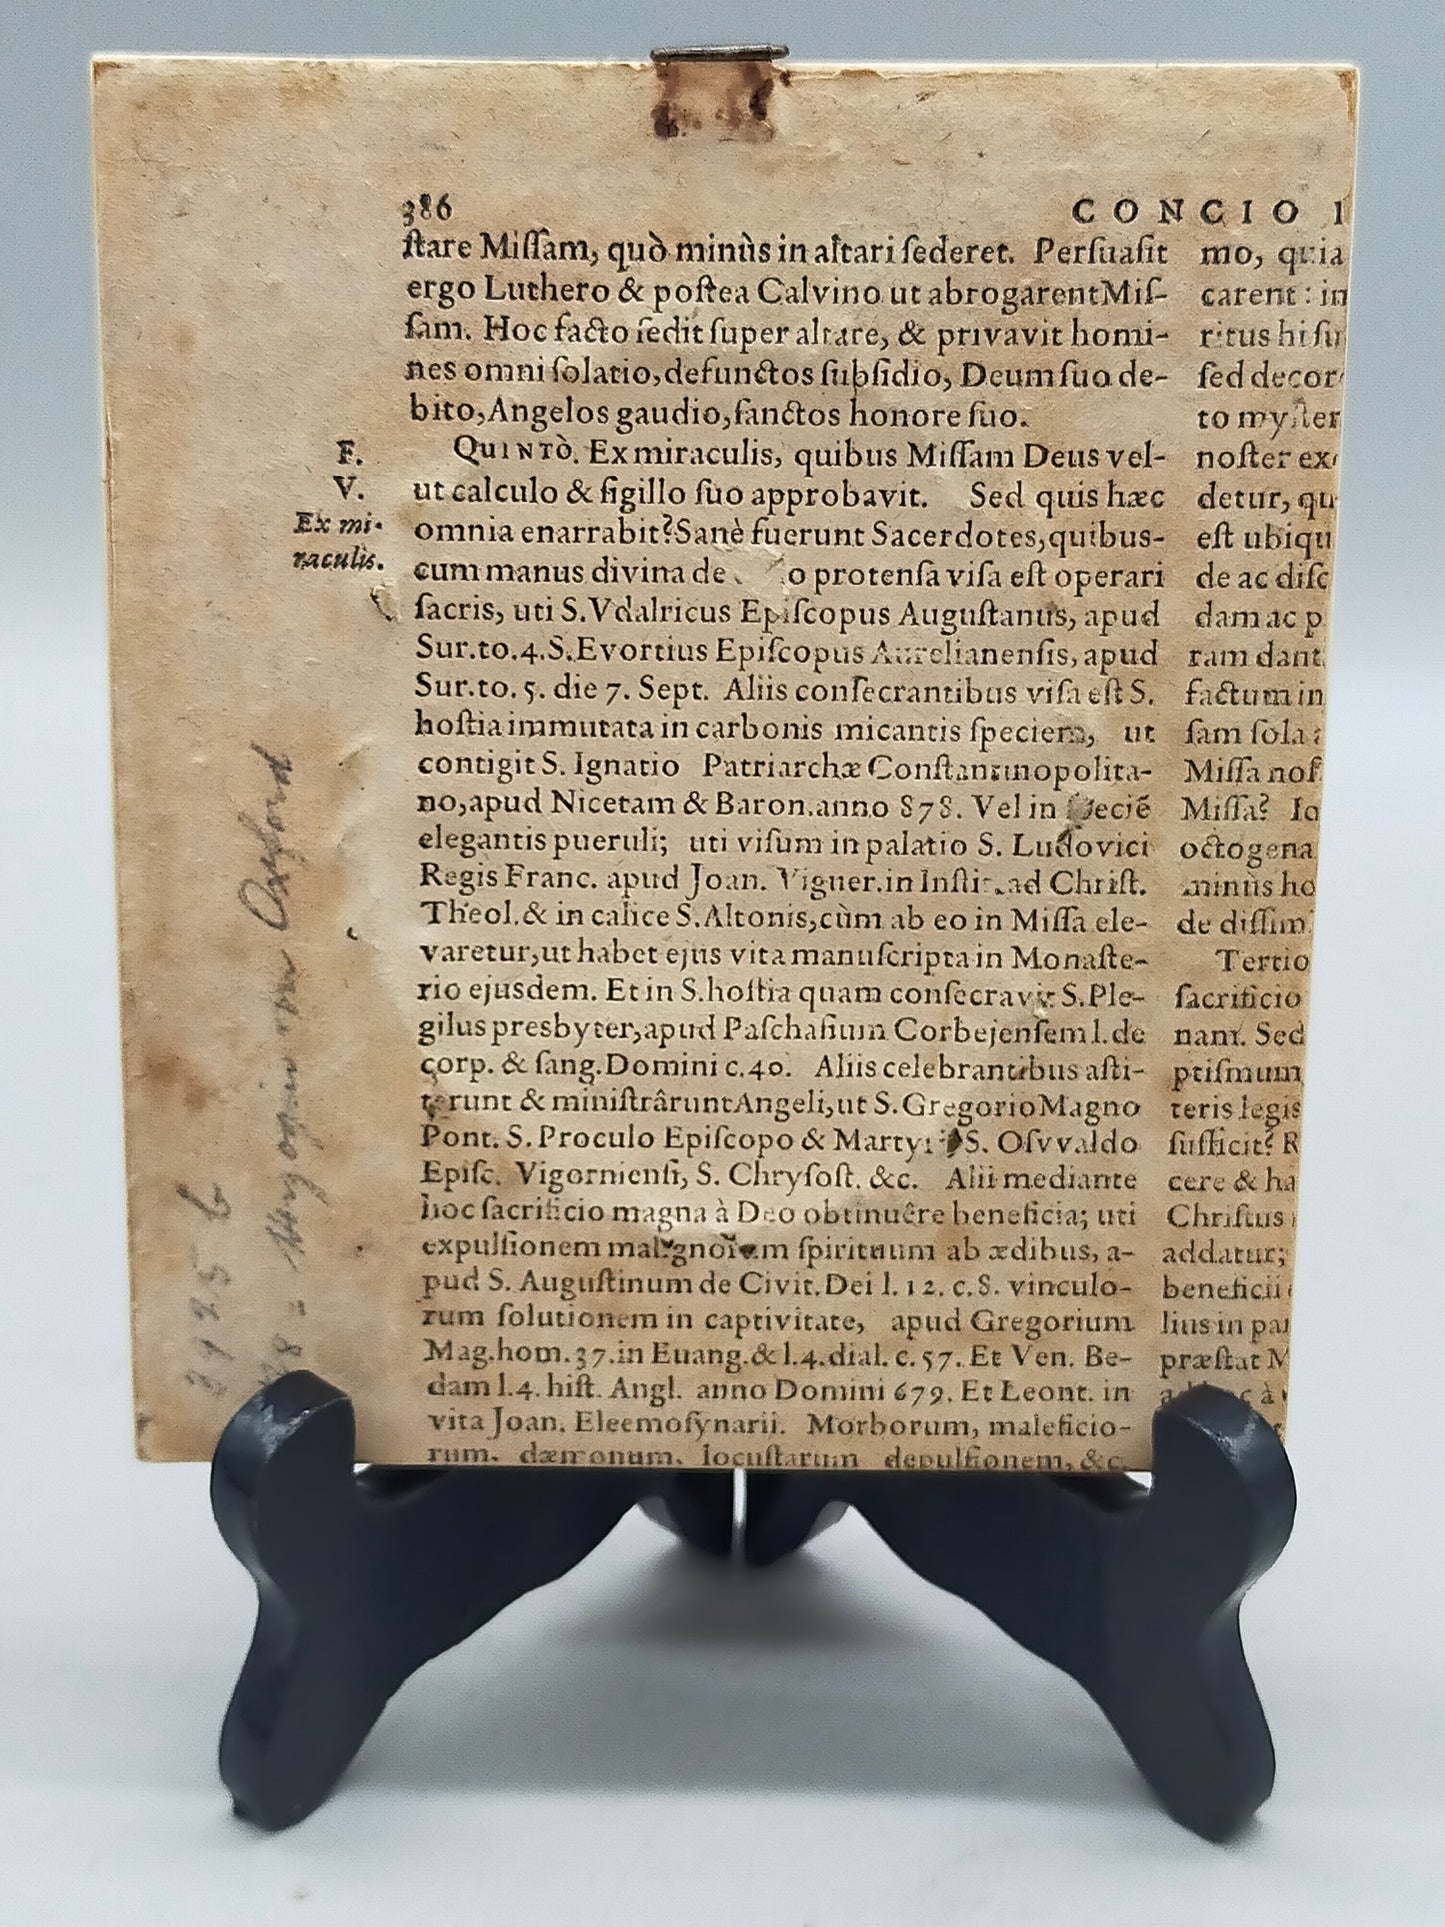 386
CONCIO
ſtare Miſſam, quò minùs in altari ſederet. Perſuaſit
ergo Luthero & poſtea Calvino ut abrogarent Miſ-
ſam. Hoc facto ſedit ſuper altare, & privavit homi-
nes omni ſolatio, defunctos ſubſidio, Deum ſuo de-
bito, Angelos gaudio, ſanctos honore ſuo.
F.
V.
Ex mi-
raculis.
QUINTÒ. Ex miraculis, quibus Miſſam Deus vel-
ut calculo & ſigillo ſuo approbavit. Sed quis hæc
omnia enarrabit? Sanè fuerunt Sacerdotes, quibus-
cum manus divina de o protenſa viſa eſt operari
ſacris, uti S. Vdalricus Epiſcopus Auguſtanus, apud
Sur. to. 4. S. Evortius Epiſcopus Aurelianenſis, apud
Sur. to. 5. die 7. Sept. Aliis conſecrantibus viſa eſt S.
hoſtia immutata in carbonis micantis ſpeciem, ut
contigit S. Ignatio Patriarchæ Conſtantinopolita-
no, apud Nicetam & Baron. anno 878. Vel in ſpeciē
elegantis pueruli; uti viſum in palatio S. Ludovici
Regis Franc. apud Joan. Viguer. in ad Chriſt.
Theol. & in calice S. Altonis, cùm ab eo in Miſſa ele-
varetur, ut habet ejus vita manuſcripta in Monaſte-
rio ejusdem. Et in S. hoſtia quam conſecravit S. Ple-
gilus presbyter, apud Paſchaſium Corbejenſem l. de
corp. & ſang. Domini c. 40. Aliis celebrantibus aſti-
terunt & miniſtrârunt Angeli, ut S. Gregorio Magno
Pont. S. Proculo Epiſcopo & Martyri S. Oſvvaldo
Epiſc. Vigornienſi, S. Chryſoſt. &c. Alii mediante
hoc ſacrificio magna à Deo obtinuêre beneficia; uti
expulſionem malignorum ſpirituum ab ædibus, a-
pud S. Auguſtinum de Civit. Dei l. 12. c. 8. vinculo-
rum ſolutionem in captivitate, apud Gregorium
Mag. hom. 37. in Euang. & l. 4. dial. c. 57. Et Ven. Be-
dam l. 4. hiſt. Angl. anno Domini 679. Et Leont. in
vita Joan. Eleemoſynarii. Morborum, maleficio-
rum, dæmonum, locuſtarum depulſionem, &c.
mo, quia
carent: in
ritus hi ſu
ſed decor
to myſter
noſter ex
detur, qu
eſt ubiqu
de ac diſc
dam ac p
ram dant
factum in
ſam ſola
Miſſa noſ
Miſſa? Io
octogena
minùs ho
de diſſim
Tertio
ſacrificio
nam. Sed
ptiſmum
teris legis
ſufficit? R
cere & ha
Chriſtus
addatur;
beneficii
lius in pa
præſtat M
à
von Oxford